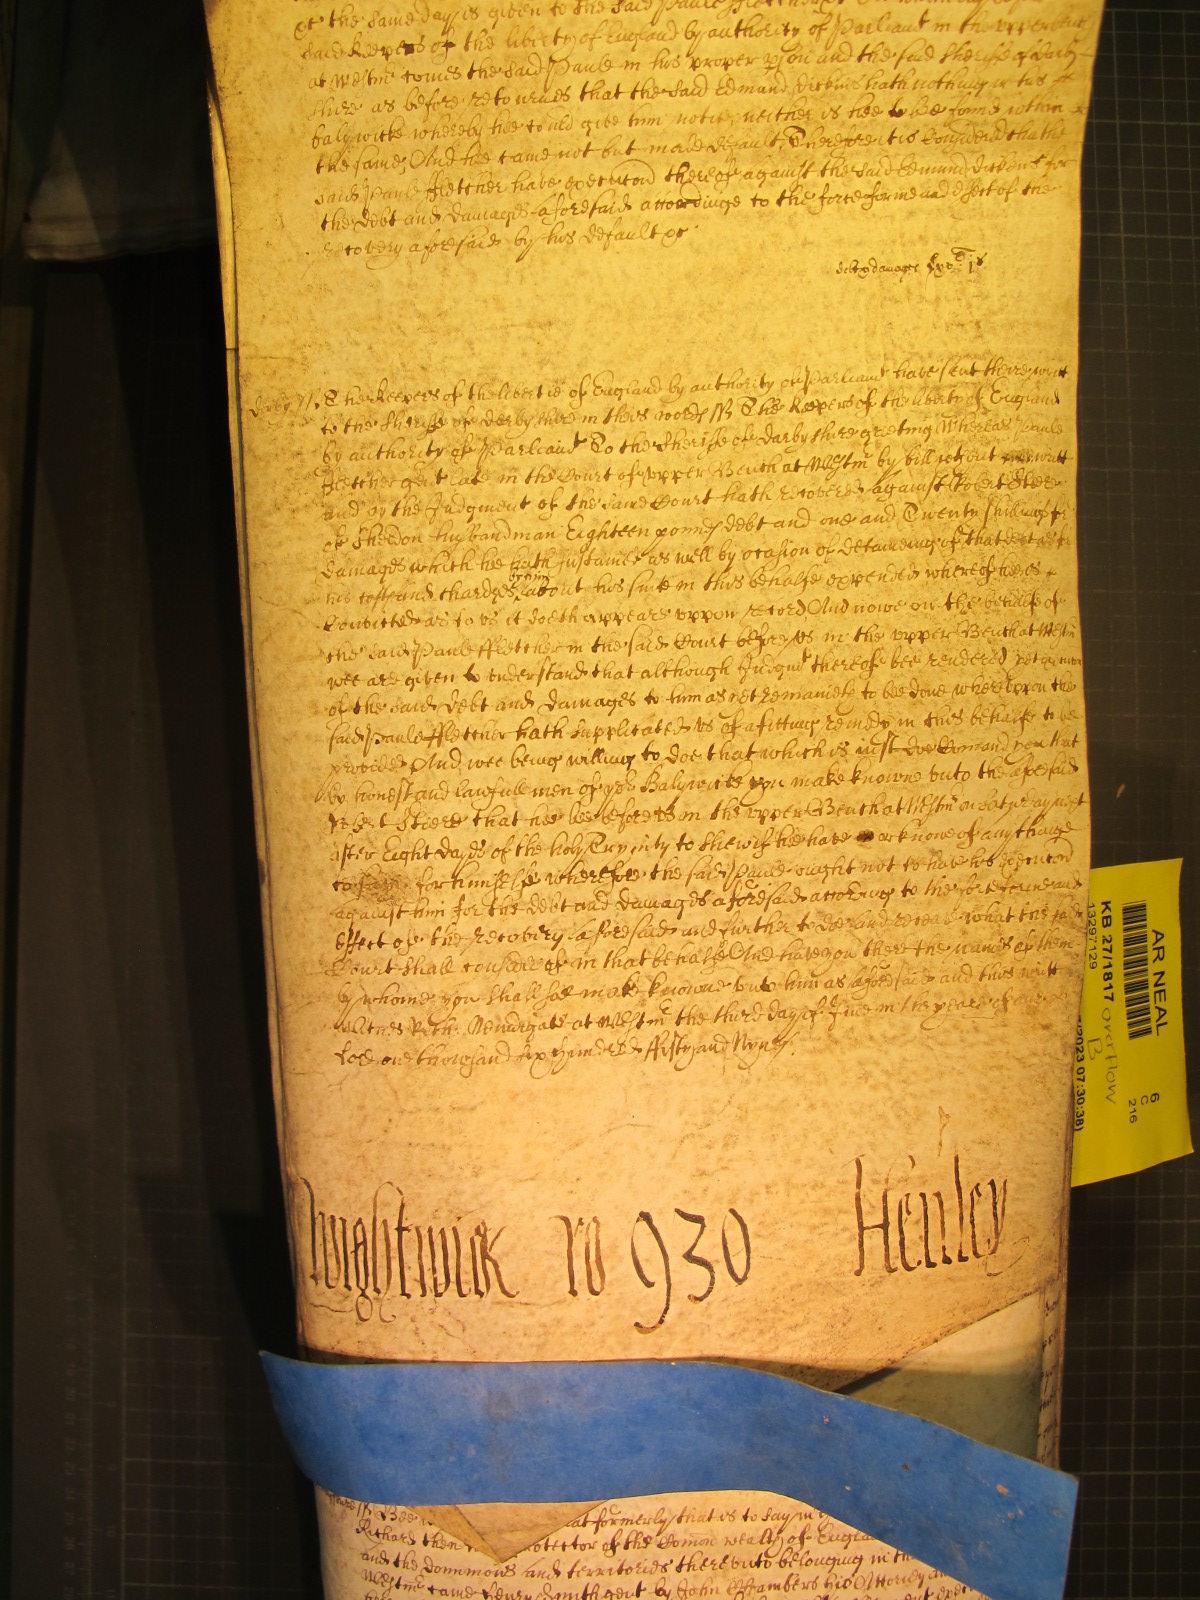 the same day is given to the said Paule Fletcher
said Keepers of the liberty of England by authority of Parliamt in the upper Bench
at Westmr comes the said Paule in his proper pson and the said Sheriffe of Darby
shire as before retournes that the said Edmund Dickins hath nothing in his
balywicke whereby hee could give him notice neither is hee to bee found within
the same, And hee came not but made default, Therefore it is Considered that the
said Paule Fletcher have execucion thereof against the said Edmund Dickins for
the debt and damages aforesaid accordinge to the force forme and effect of the
recovery aforesaid by his default &c
debt & damages
Derby ss. The Keepers of the libertie of England by authority of Parliamt have sent there writt
to the Sheriffe of Derbyshire in theis words ss The Keepers of the liberty of England
by authority of Parliamt To the Sheriffe of Darbyshire greeting Whereas Paule
Fletcher gent late in the Court of upper Bench at Westmr by bill without writt
and by the Judgment of the same Court hath recovered against Robert Steere
of Sheldon husbandman Eighteen pounds debt and one and Twenty shillings for
damages which he hath sustained as well by ocasion of detaineing of that debt as for
his costs and chardges by him about his suite in this behalfe expended whereof hee is
Convicted as to us it doeth appeare uppon record And nowe on the behalfe of
the said Paule Ffletcher in the said Court before us in the upper Bench at Westmr
wee are given to understand that although Judgmt thereof bee rendered yet
of the said debt and damages to him as yet remaineth to bee done whereuppon the
said Paule Ffletcher hath supplicated us of a fitting remedy in this behalfe to be
provided And wee being willing to doe that which is just doe Comand you that
by honest and lawfull men of yor Balywicke you make knowne unto the aforesaid
Robert Steere that hee bee before us in the upper Bench at Westmr on Saturday next
after Eight dayes of the holy Trynity to shewe if hee have or knowe of any thinge
to say for himselfe wherefore the said Paule ought not to have his execucion
against him for the debt and damages aforesaid according to the force forme and
effect of the recovery aforesaid and further to doe and receave what the said
Court shall consider of in that behalfe And have you there the names of them
by whome you shall soe make knowne unto him as aforesaid and this writt
Witnes Rich: Newdigate at Westmr the third day of June in the yeare of our
Lord one thousand six hundred ffifty and Nyne.
Wightwick ro 930 Henley
AR NEAL
KB 27/1817 overflow
B
13297129
6
C
216
/2023 07:30:38)
at formerly that is to say in
Richard then Protector of the Common wealth of England
and the dominions and territories thereunto belonging in the
Westmr came Henry Smith gent by John Chambers his Attorney